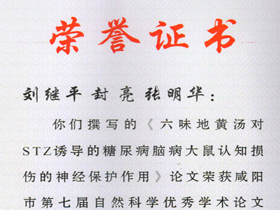 荣誉证书
刘继平 封亮 张明华：
你们撰写的《六味地黄汤对
STZ诱导的糖尿病脑病大鼠认知损
伤的神经保护作用》论文荣获咸阳
市第七届自然科学优秀学术论文